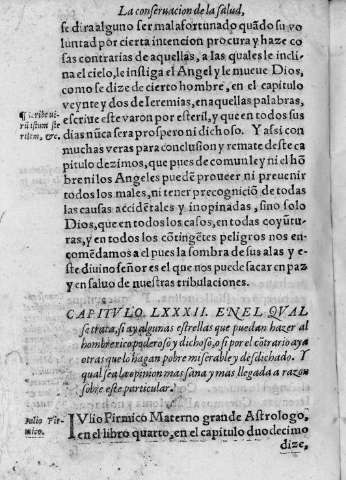 La conseruacion de la salud,
se dira alguno ser mal afortunado quãdo su vo
luntad por cierta intencion procura y haze co
sas contrarias de aquellas, a las quales le incli
na el cielo, le instiga el Angel y le mueue Dios,
como se dize de cierto hombre, en el capitulo
veynte y dos de Ieremias, en aquellas palabras,
¶ Scribe vi-
rũ istum ste
rilem, &c.
escriue este varon por esteril, y que en todos sus
dias nũca sera prospero ni dichoso. Y assi con
muchas veras para conclusion y remate deste ca
pitulo dezimos, que pues de comun ley ni el hõ
bre ni los Angeles puedẽ proueer ni preuenir
todos los males, ni tener precogniciõ de todas
las causas accidẽtales y inopinadas, sino solo
Dios, que en todos los casos, en todas coyũtu-
ras, y en todos los cõtingẽtes peligros nos en-
comẽdamos a el pues la sombra de sus alas y es-
te diuino señor es el que nos puede sacar en paz
y en saluo de nuestras tribulaciones.
CAPITVLO. LXXXII. EN EL QVAL
se trata, si ay algunas estrellas que puedan hazer al
hombre rico poderoso y dichoso, o si por el cõtrario aya
otras que lo hagan pobre miserable y desdichado. Y
qual sea la opinion mas sana y mas llegada a razon
sobre este particular.
Iulio Fir-
mico.
IVlio Firmico Materno grande Astrologo,
en el libro quarto, en el capitulo duodecimo
dize,